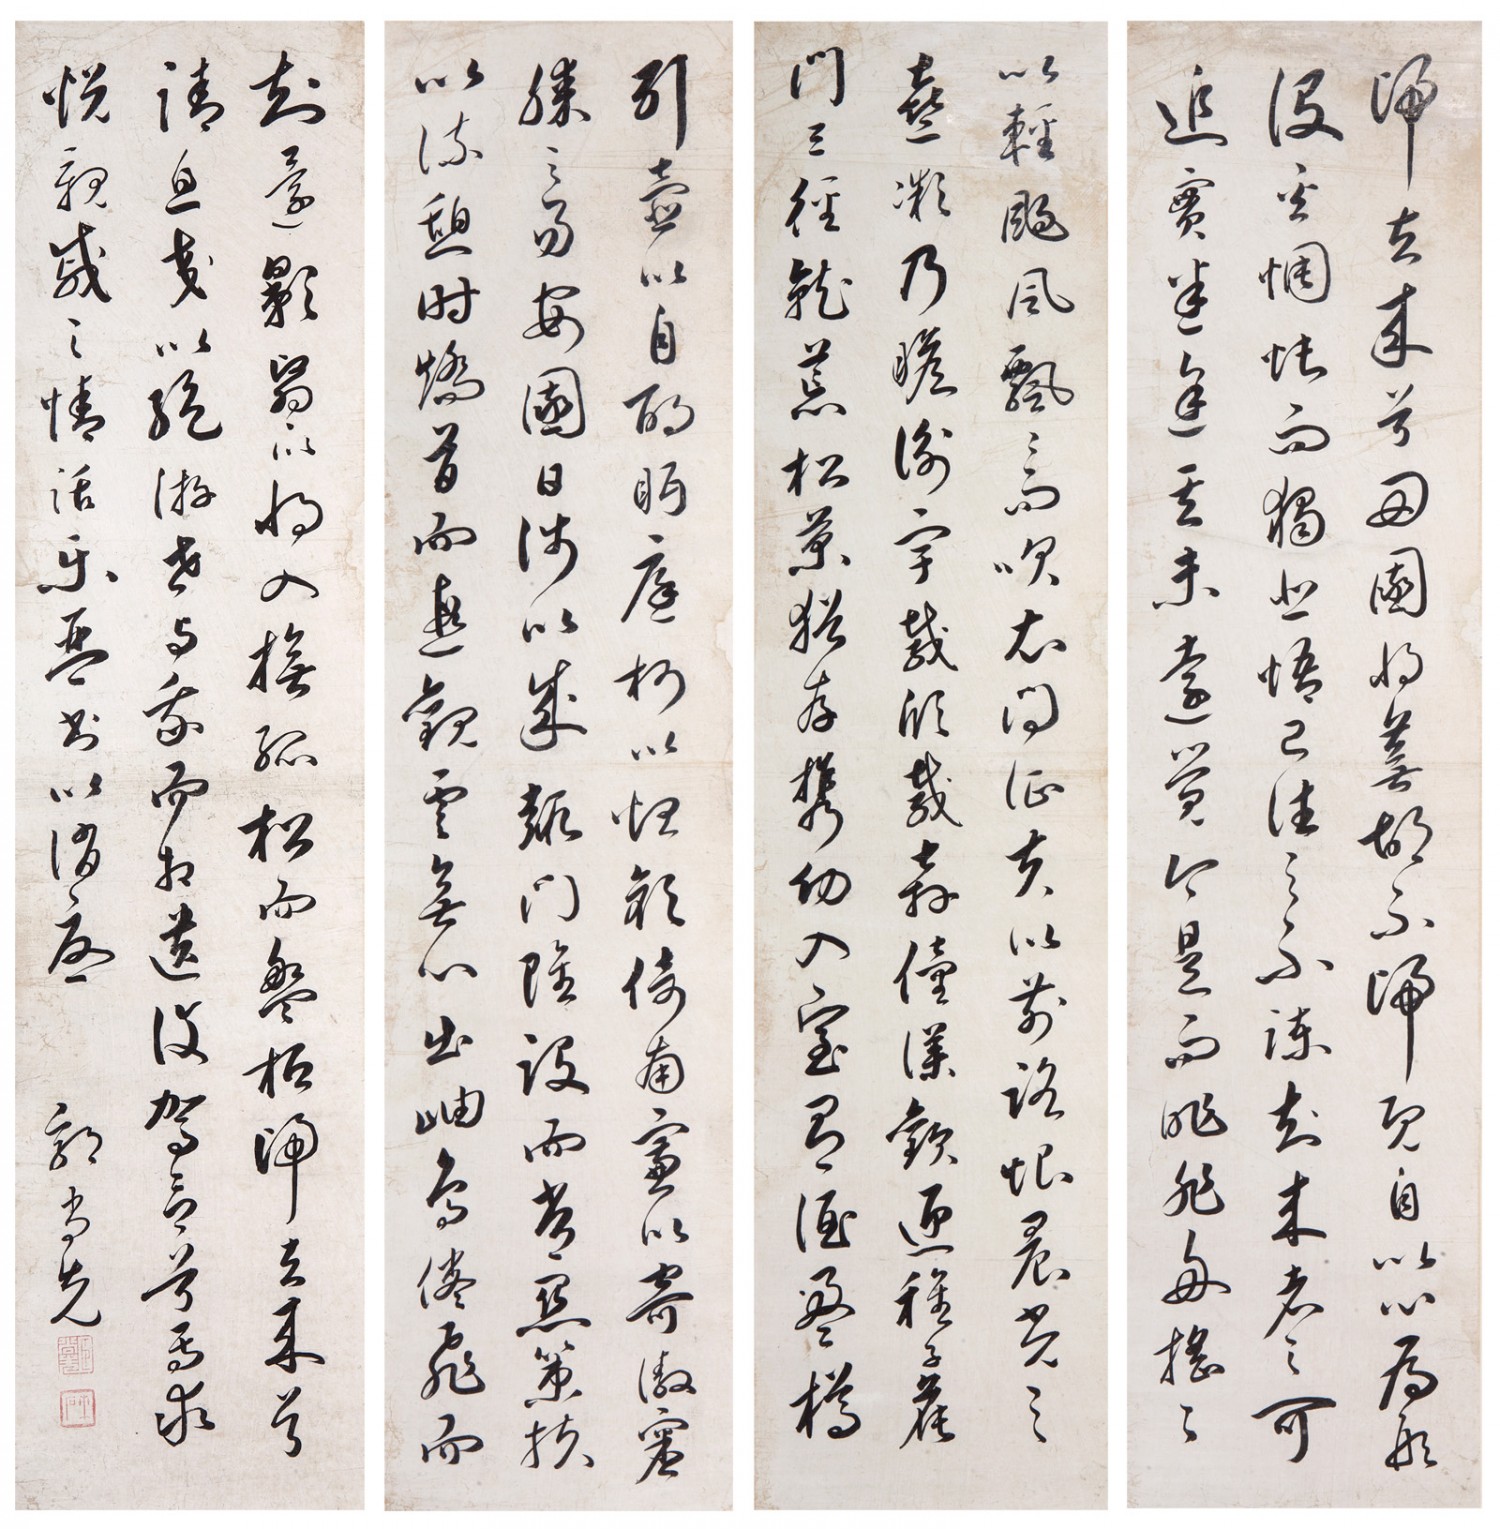 歸去來兮田園將蕪胡不歸既自以心為形
役奚惆悵而獨悲悟已往之不諫知來者之可
追實迷途其未遠覺今是而昨非舟搖々
以輕颺風飄々而吹衣問征夫以前路恨晨光之
熹微乃瞻衡宇載欣載奔僮僕歡迎稚子候
門三徑就荒松菊猶存攜幼入室有酒盈樽
引壺以自酌眄庭柯以怡顏倚南窗以寄傲審
膝之易安園日涉以成趣門雖設而常關策扶
以流憩時矯首而遐觀雲無心出岫鳥倦飛而
知還影翳以將入撫孤松而盤桓歸去來兮
請息交以絕游世與我而相遺復駕言兮焉求
悅親戚之情話樂琴書以消憂 郭尚先